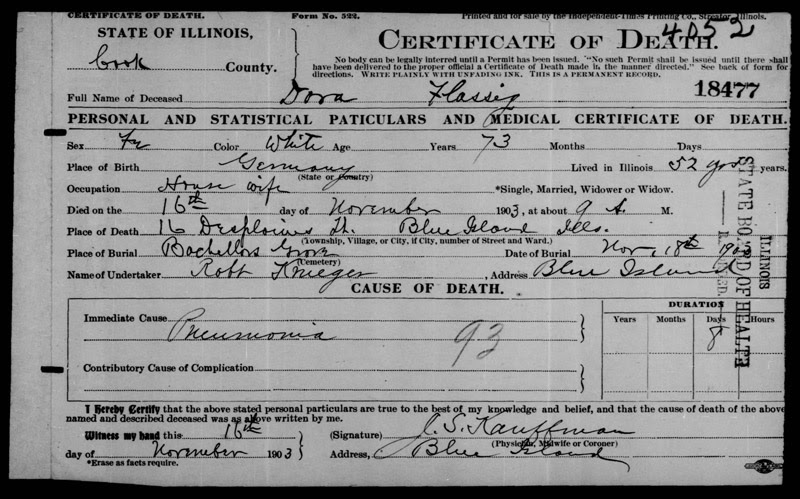 CERTIFICATE OF DEATH. Form No. 522. Printed and for sale by the Independent-Times Printing Co., Streator, Illinois.
STATE OF ILLINOIS, CERTIFICATE OF DEATH. 4052
Cook County. No body can be legally interred until a Permit has been issued. "No such Permit shall be issued until there shall
have been delivered to the proper official a Certificate of Death made in the manner directed." See back of form for
directions. WRITE PLAINLY WITH UNFADING INK. THIS IS A PERMANENT RECORD.
Full Name of Deceased Dora Flassig 18477
PERSONAL AND STATISTICAL PATICULARS AND MEDICAL CERTIFICATE OF DEATH.
Sex Color White Age Years 73 Months Days
Place of Birth Germany Lived in Illinois 52 years.
(State or Country)
Occupation House wife *Single, Married, Widower or Widow.
Died on the 16th day of November 1903, at about 9 A. M.
Place of Death 16 Desplaines St. Blue Island Ills.
(Township, Village, or City, if City, number of Street and Ward.)
Place of Burial Bachellors Grove Date of Burial Nov, 18th 190
(Cemetery)
Name of Undertaker Robt Krueger, Address Blue Island
ILLINOIS
STATE BOARD OF HEALTH
CAUSE OF DEATH.
DURATION
Immediate Cause Years Months Days Hours
Pneumonia 93 8
Contributory Cause of Complication
I Hereby Certify that the above stated personal particulars are true to the best of my knowledge and belief, and that the cause of death of the above
named and described deceased was as above written by me.
Witness my hand this 16th (Signature) J. S. Kauffman
(Physician, Midwife or Coroner)
day of November 1903 Address, Blue Island
*Erase as facts require.